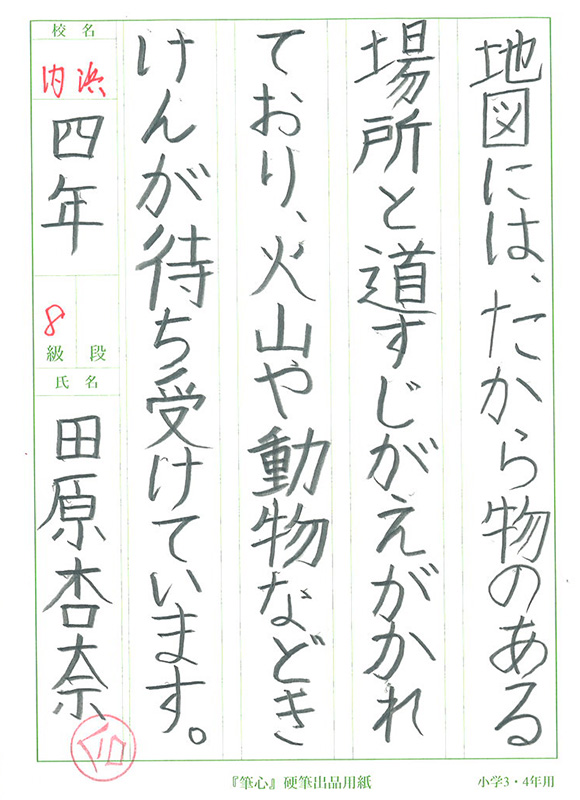 地図には、たから物のある
場所と道すじがえがかれ
ており、火山や動物などき
けんが待ち受けています。
校名
内浜
四年
8
級 段
氏名
田原杏奈
『筆心』硬筆出品用紙
小学3・4年用